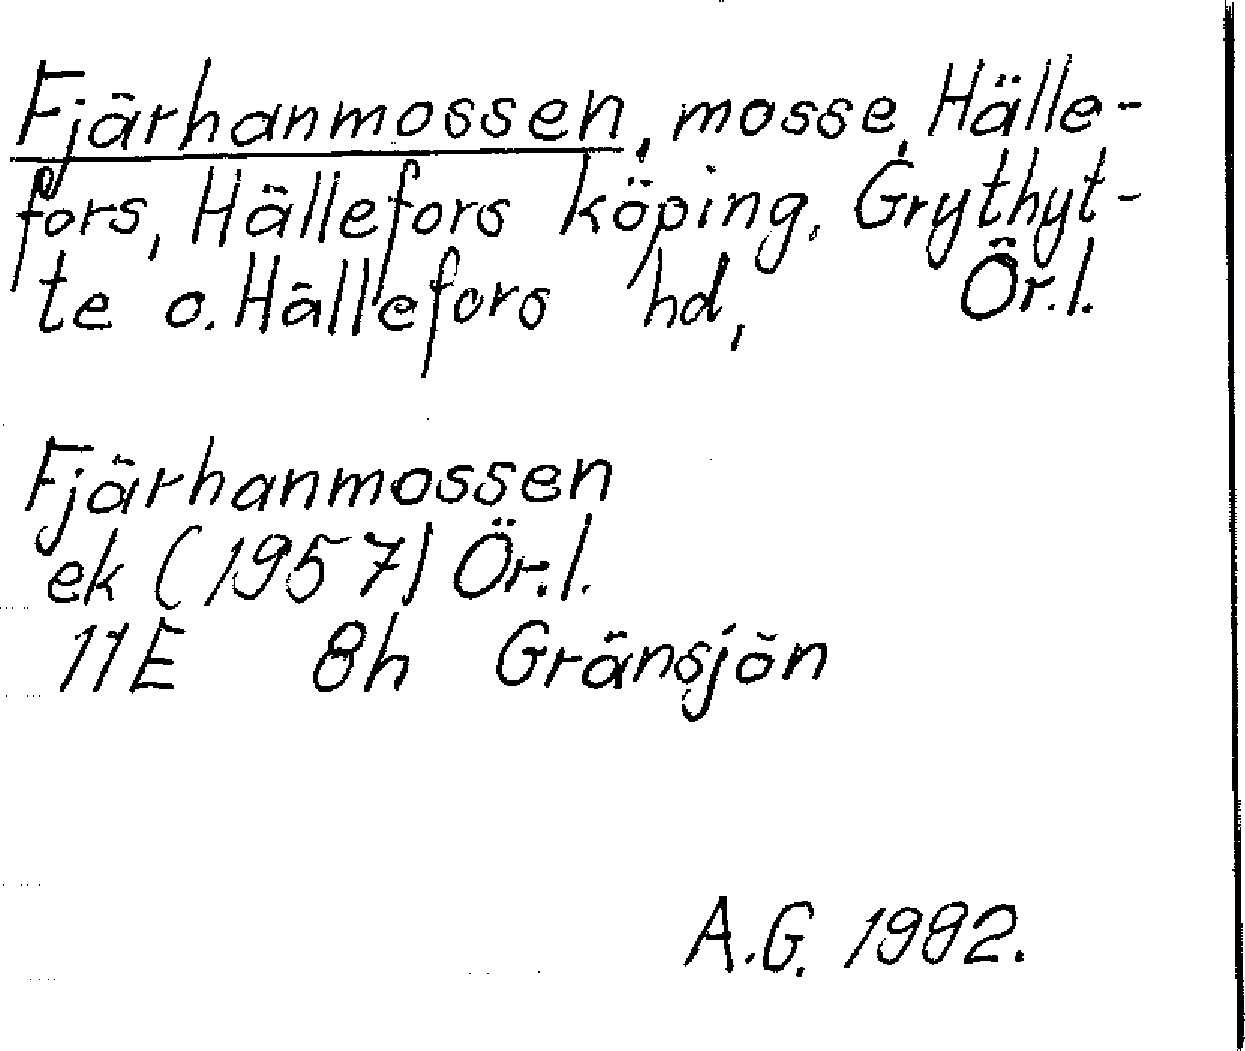 Fjärhanmossen, mosse, Hälle-
fors, Hällefors köping, Grythyt-
te o. Hällefors hd, Ör.l.
Fjärhanmossen
ek (1957) Ör.l.
11E 8h Gränsjön
A.G. 1982.